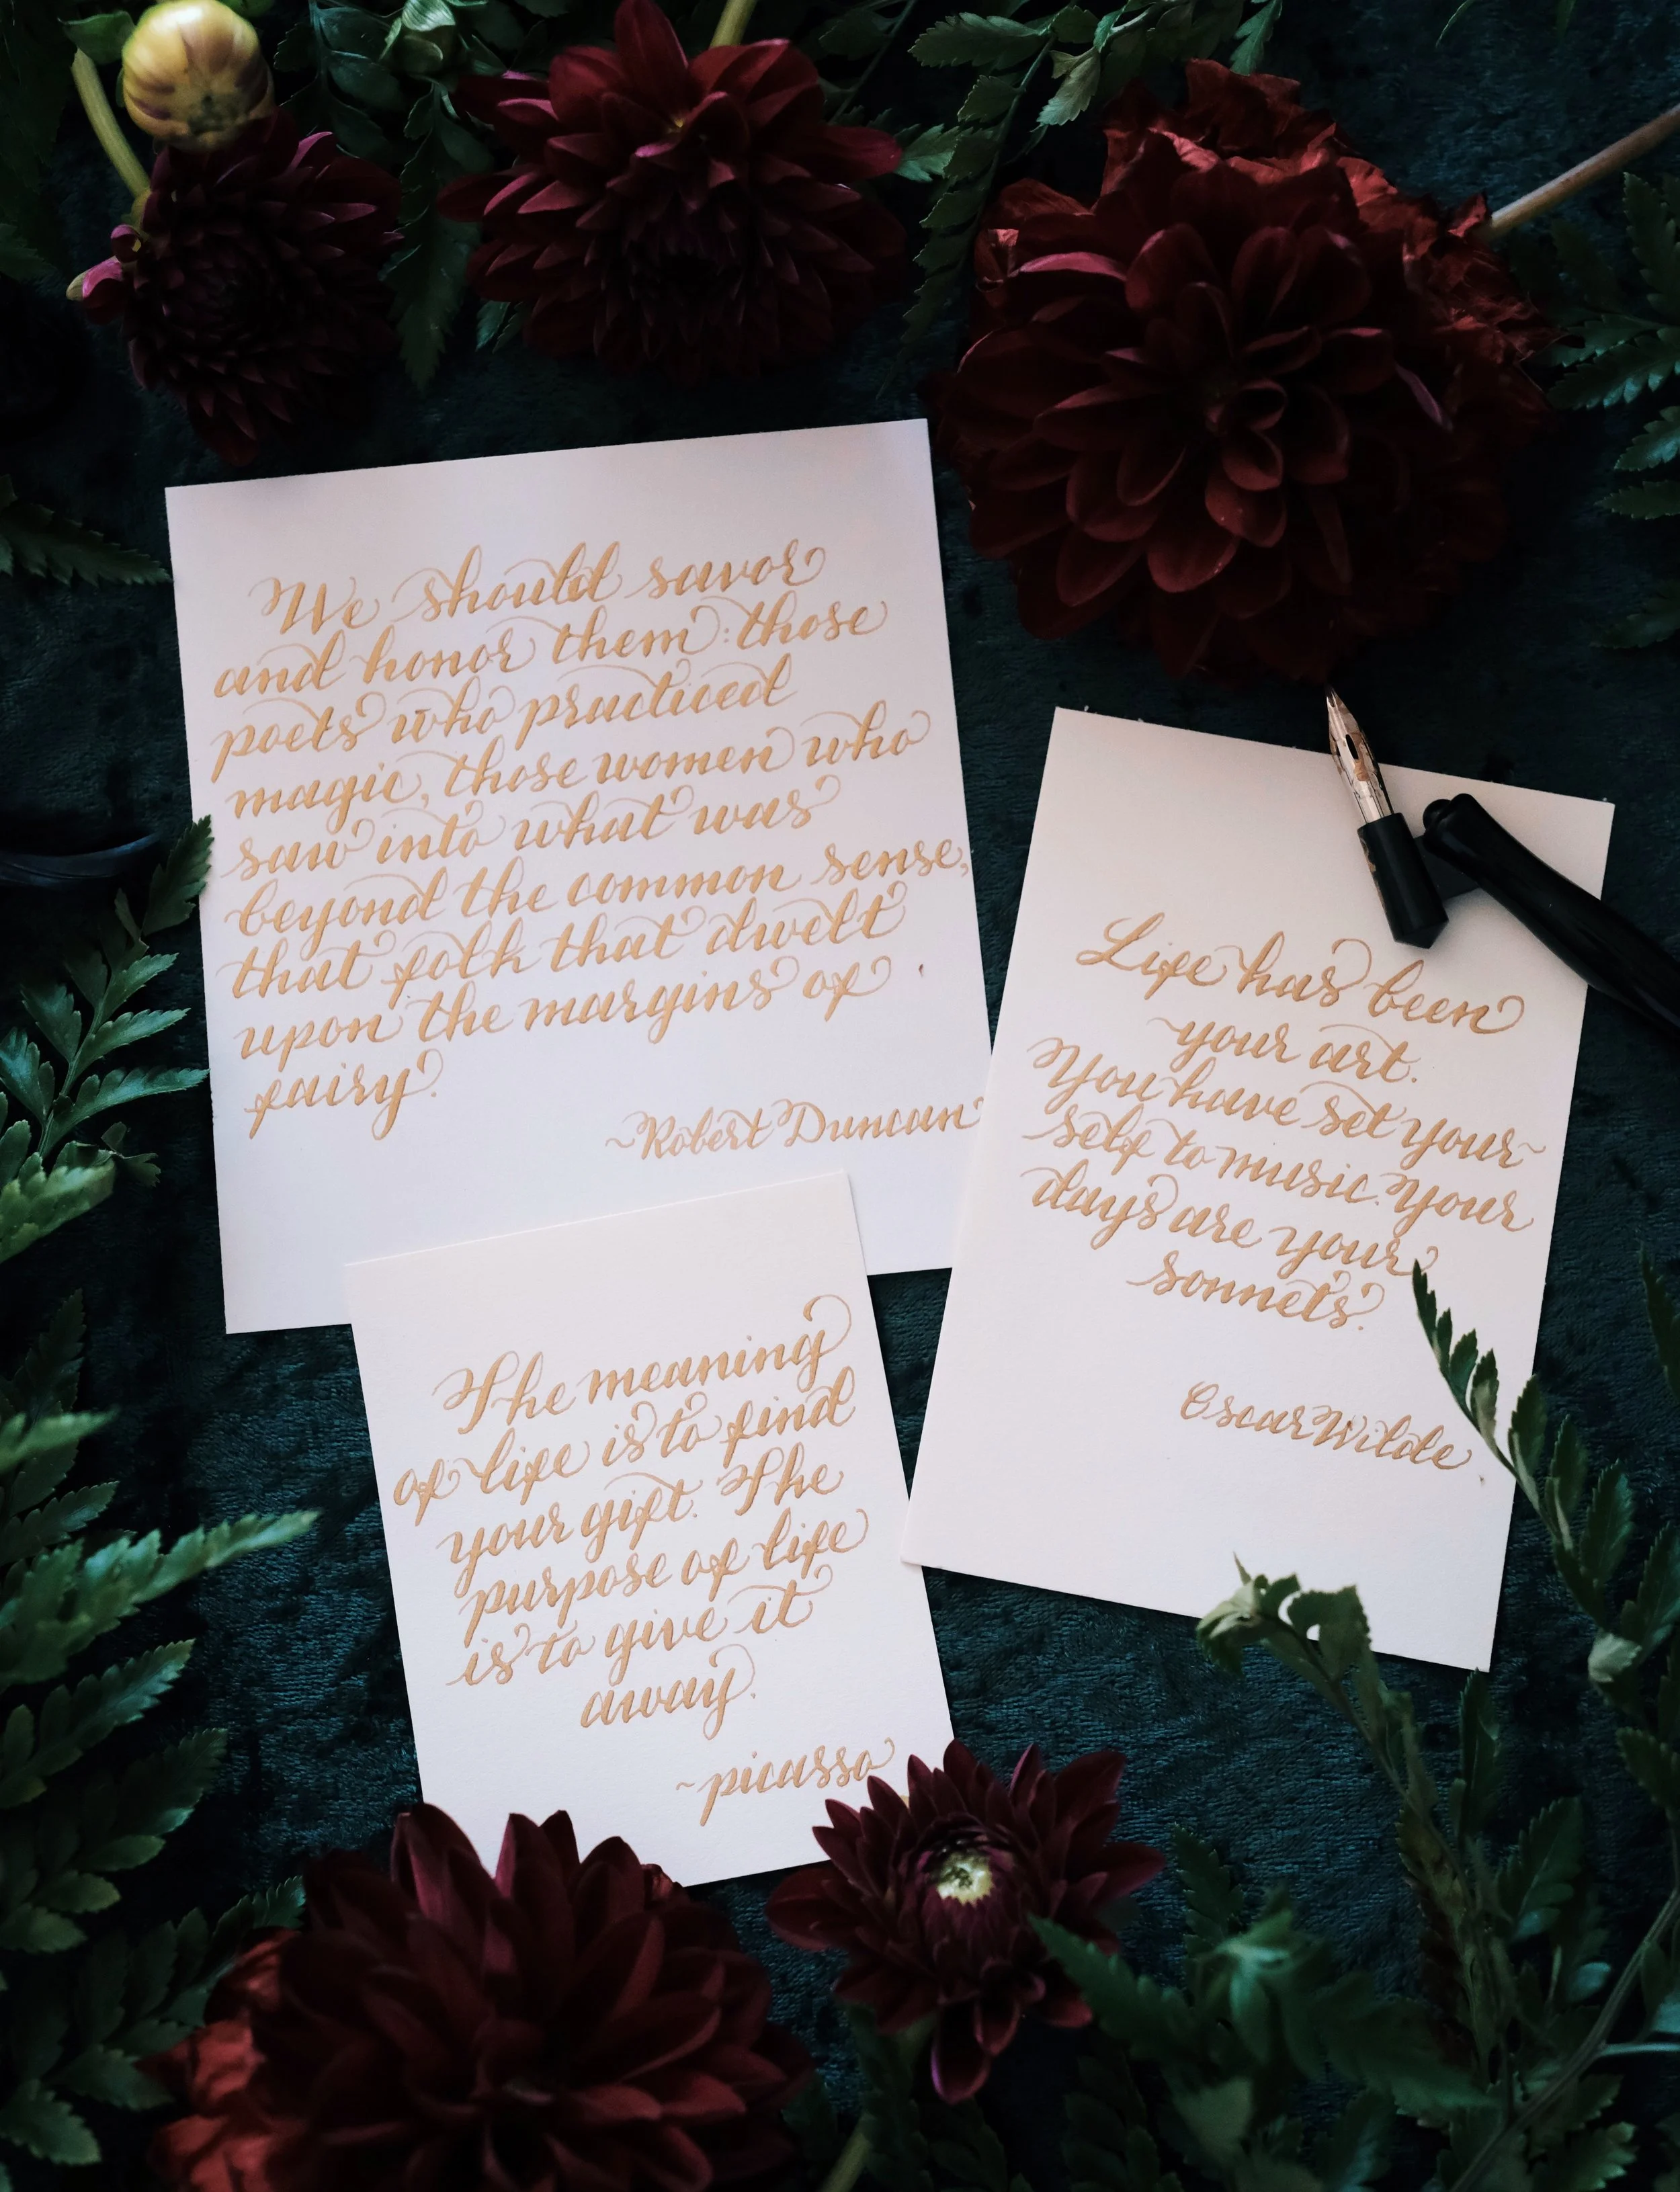 We should savor
and honor them: those
poets who practiced
magic, those women who
saw into what was
beyond the common sense,
that folk that dwelt
upon the margins of
fairy.
~Robert Duncan
Life has been
your art.
You have set your~
self to music. Your
days are your
sonnets.
Oscar Wilde
The meaning
of life is to find
your gift. The
purpose of life
is to give it
away.
~picasso